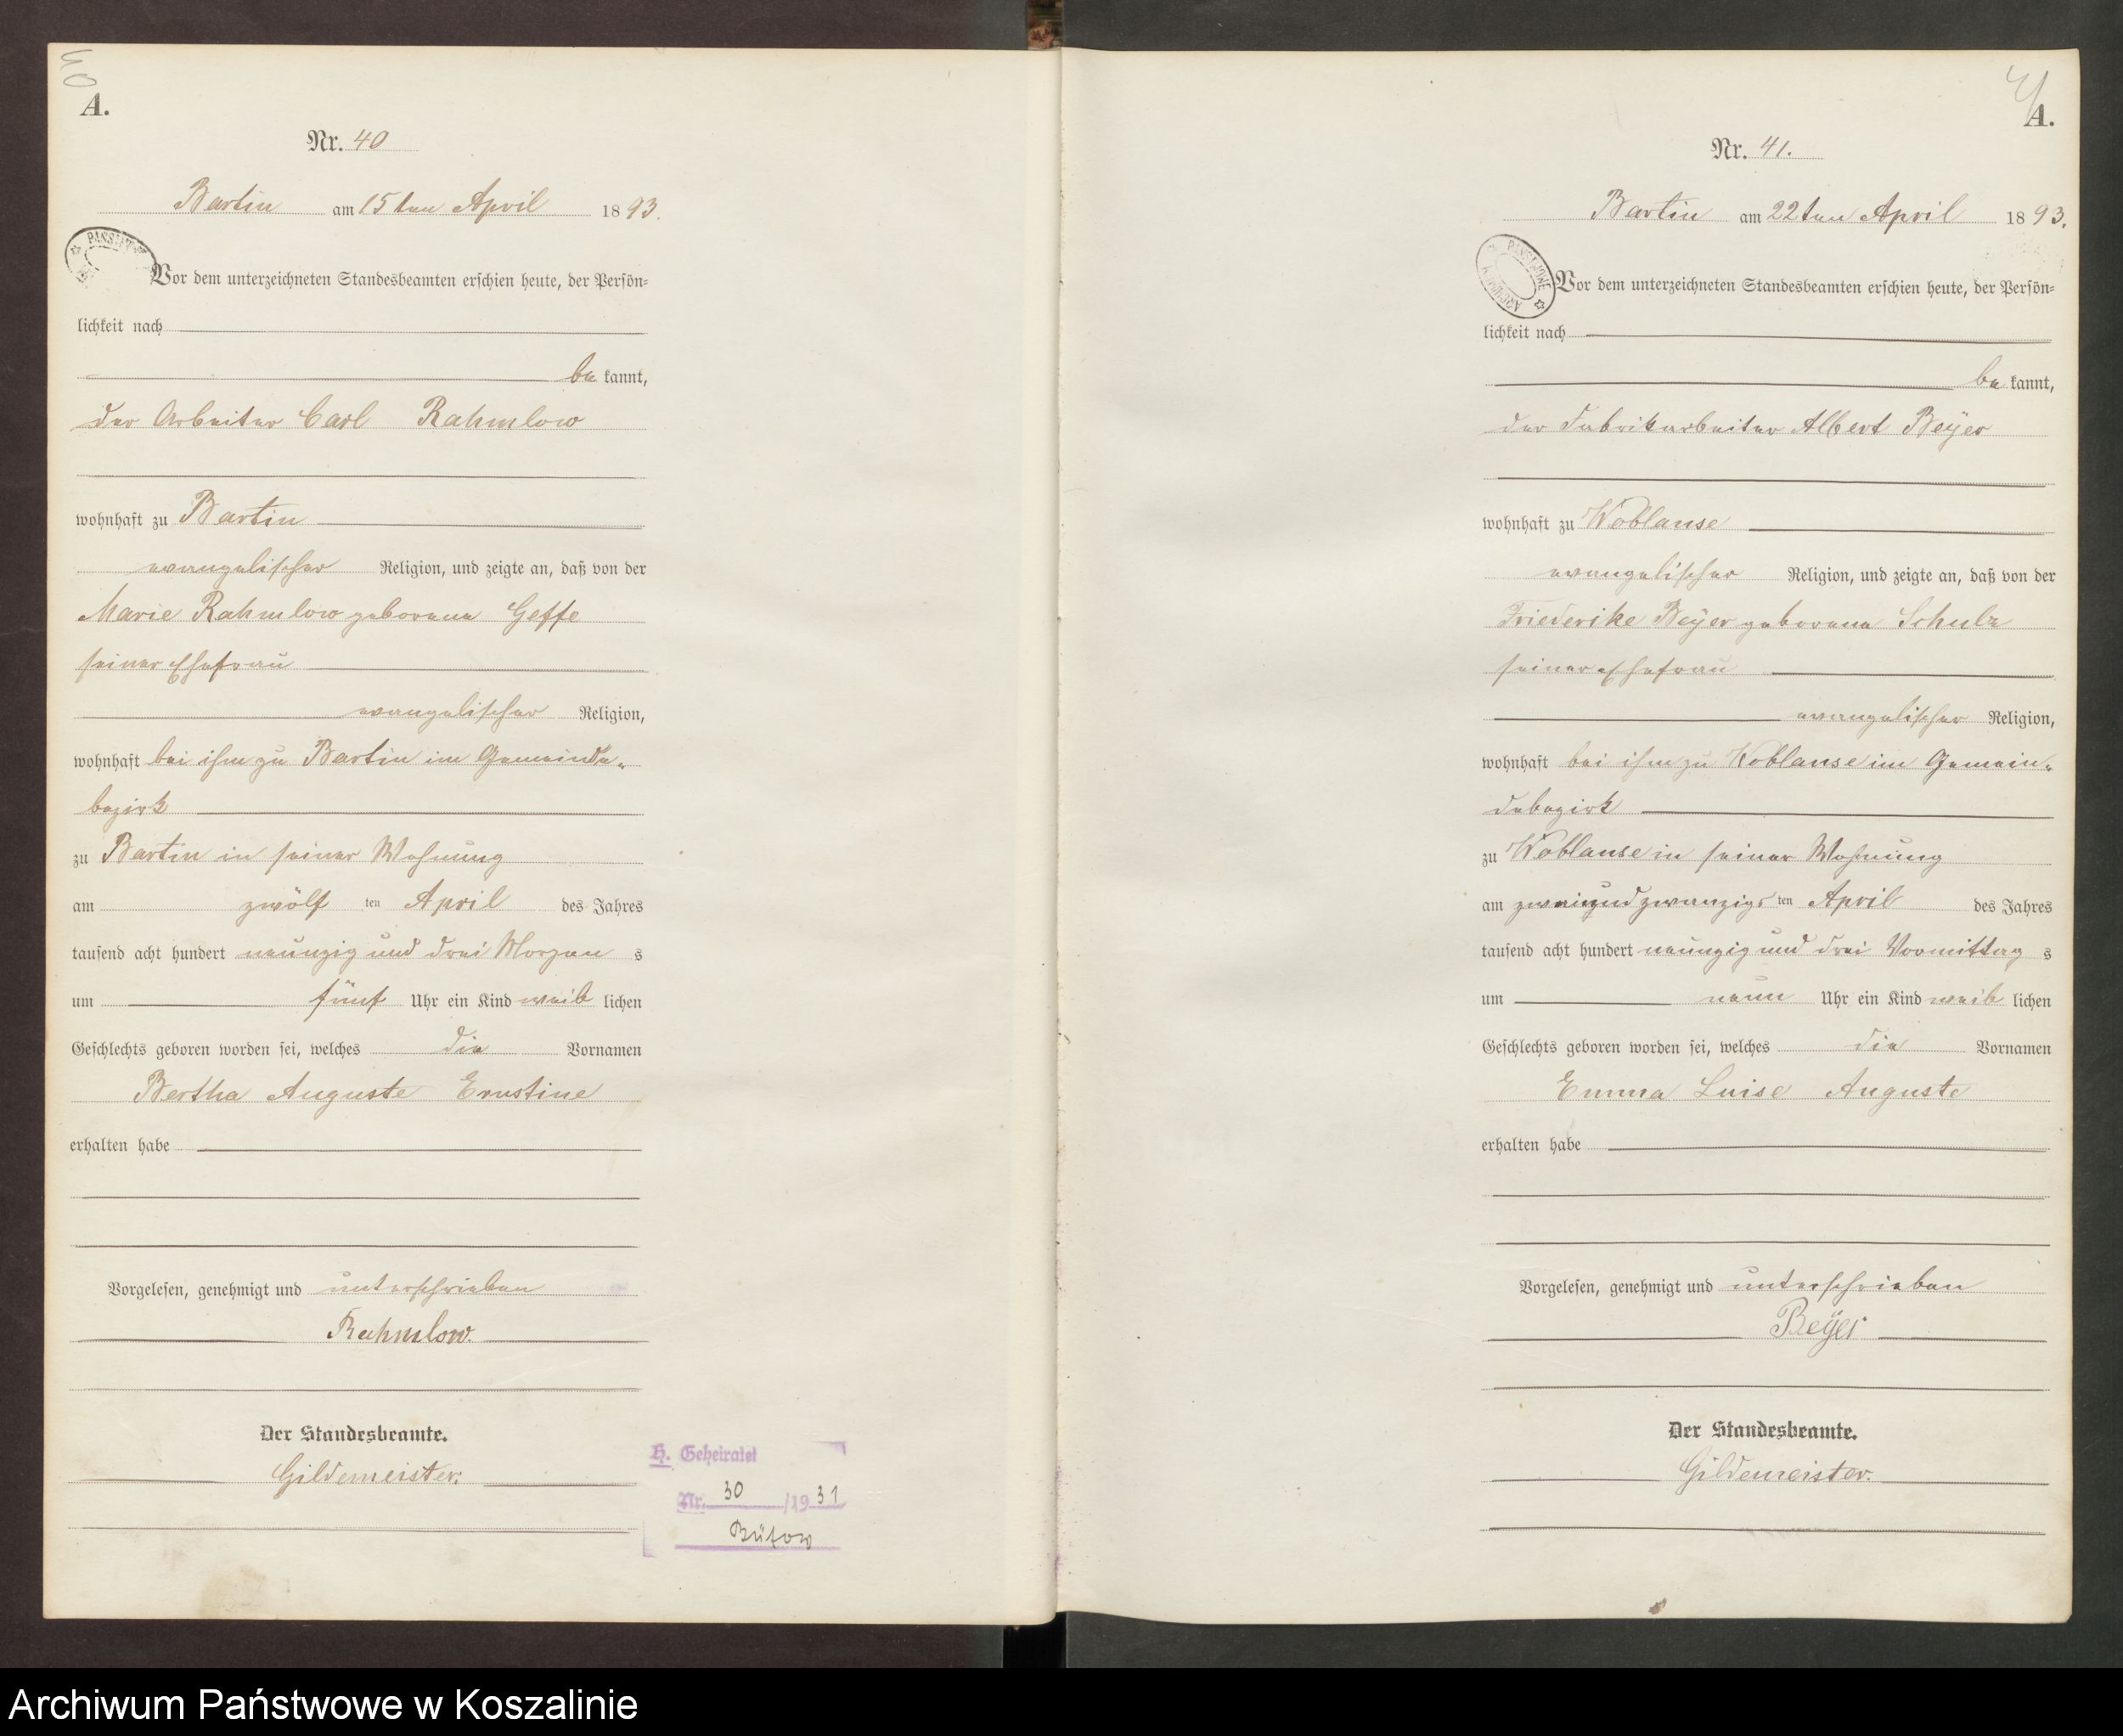 40
A.
Nr. 40
Bartin am 15ten April 1893.
Vor dem unterzeichneten Standesbeamten erschien heute, der Persön=
lichkeit nach
be kannt,
der Arbeiter Carl Rahmlow
wohnhaft zu Bartin
evangelischer Religion, und zeigte an, daß von der
Marie Rahmlow geborene Geffe
seiner Ehefrau
evangelischer Religion,
wohnhaft bei ihm zu Bartin im Gemeinde-
bezirk
zu Bartin in seiner Wohnung
am zwölf ten April des Jahres
tausend acht hundert neunzig und drei Morgen s
um fünf Uhr ein Kind weib lichen
Geschlechts geboren worden sei, welches die Vornamen
Bertha Auguste Ernstine
erhalten habe
Vorgelesen, genehmigt und unterschrieben
Rahmlow.
Der Standesbeamte.
Gildemeister.
H. Geheiratet
Nr. 30 /1931
Bütow
41
A.
Nr. 41.
Bartin am 22ten April 1893.
Vor dem unterzeichneten Standesbeamten erschien heute, der Persön=
lichkeit nach
be kannt,
der Fabrikarbeiter Albert Beÿer
wohnhaft zu Woblanse
evangelischer Religion, und zeigte an, daß von der
Friederike Beÿer geborene Schulz
seiner Ehefrau
evangelischer Religion,
wohnhaft bei ihm zu Woblanse im Gemein-
debezirk
zu Woblanse in seiner Wohnung
am zweiundzwanzigs ten April des Jahres
tausend acht hundert neunzig und drei Vormittag s
um neun Uhr ein Kind weib lichen
Geschlechts geboren worden sei, welches die Vornamen
Emma Luise Auguste
erhalten habe
Vorgelesen, genehmigt und unterschrieben
Beÿer
Der Standesbeamte.
Gildemeister.
Archiwum Państwowe w Koszalinie